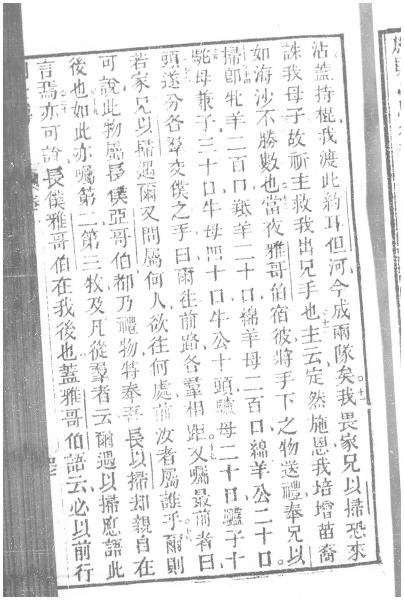 沾蓋持棍我渡此約耳但河今成兩隊矣我畏家兄以掃恐來
誅我母子故祈主救我出兄手也主云定然施恩我培增苗裔
如海沙不勝數也當夜雅哥伯宿彼將手下之物送禮奉兄以
掃卽牝羊二百口羝羊二十口綿羊母二百口綿羊公二十口
駝母兼子三十口牛母四十口牛公十頭驢母二十口驢子十
頭遂分各羣交僕之手曰爾往前路各羣相距又囑最前者曰
若家兄以掃遇爾又問屬何人欲往何處前汝者屬誰乎爾則
可說此物屬長僕亞哥伯都乃禮物特奉哥長以掃却親自在
後也如此亦囑第二第三牧及凡從羣者云爾遇以掃應語此
言焉亦可說長僕雅哥伯在我後也蓋雅哥伯語云必以前行